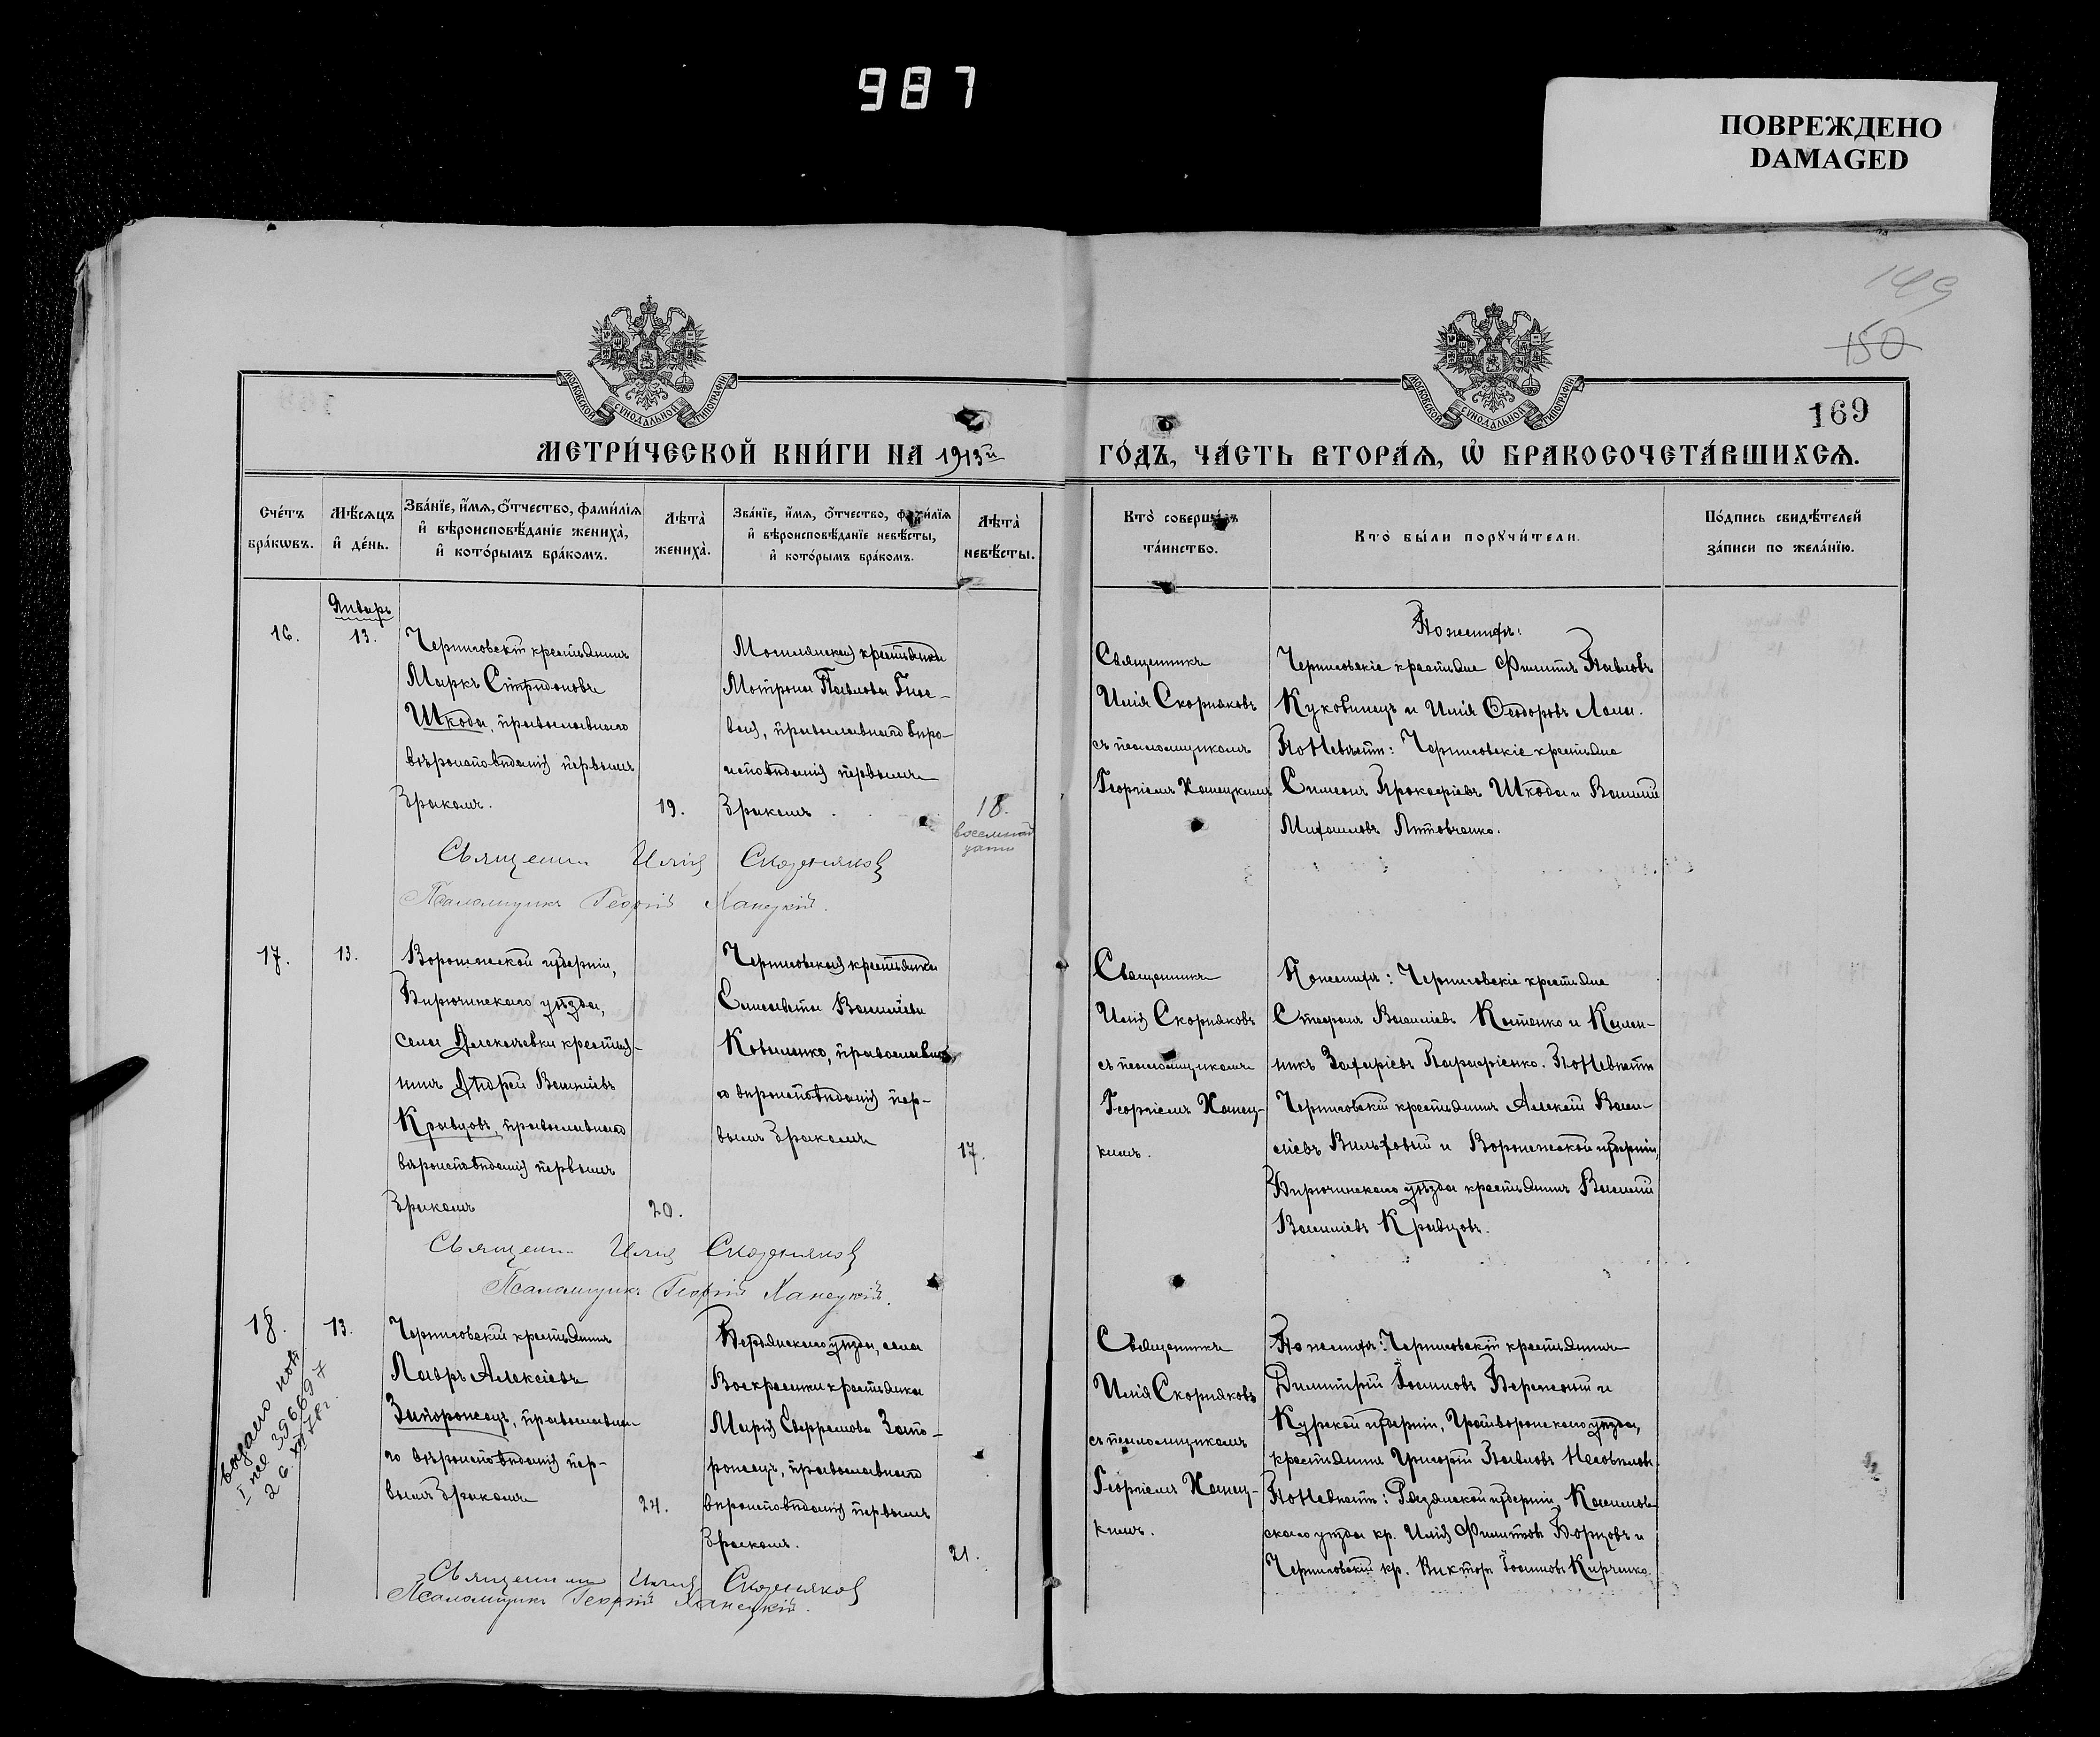 987
ПОВРЕЖДЕНО
DAMAGED
149
150
169
МОСКОВСКОЙ СУНОДАЛЬНОЙ ТИПОГРАФІИ
МОСКОВСКОЙ СУНОДАЛЬНОЙ ТИПОГРАФІИ
МЕТРИ́ЧЕСКОЙ КНИ́ГИ НА 1913й ГО́ДЪ, ЧА́СТЬ ВТОРА́Я, Ѡ҆ БРАКОСОЧЕТА́ВШИХСЯ.
Сче́тъ бра́кѡвъ.
Мѣ́сяцъ и҆ де́нь.
Зва́нїе, и҆́мя, ѻ҆́тчество, фами́лїя
и҆ вѣроисповѣ́данїе жениха̀,
и҆ кото́рымъ бра́комъ.
Лѣта̀ жениха̀.
Зва́нїе, и҆́мя, ѻ҆́тчество, фами́лїя
и҆ вѣроисповѣ́данїе невѣ́сты,
и҆ кото́рымъ бра́комъ.
Лѣта̀ невѣ́сты.
Кто̀ соверша́лъ та́инство.
Кто̀ бы́ли порꙋчи́тели.
По́дпись свидѣ́телей за́писи по жела́нїю.
Январь
16.
13.
Черниговскій крестьянинъ
Маркъ Спиридоновъ
Шкода, православнаго
вѣроисповѣданія первымъ
бракомъ.
19.
крестьянка
Мотрона Павлова Гное-
вая, православнаго вѣро-
исповѣданія первымъ
бракомъ.
18.
восемнад
цати
Священникъ
Илія Скорняковъ
съ псаломщикомъ
Георгіемъ Ханецкимъ
По женихѣ:
Черниговскіе крестьяне Филиппъ Павловъ
Куковинецъ и Илія Ѳеодоровъ Лала.
По невѣстѣ: Черниговскіе крестьяне
Симеонъ Прокофіевъ Шкода и Василій
Михаиловъ Литовченко.
Священник Илія Скорняков
Псаломщикъ Георгій Ханецкій.
17.
13.
Воронежской губерніи,
Бирючинскаго уѣзда,
села Алексѣевки крестья-
нинъ Андрей Васильевъ
Кравцовъ, православнаго
вѣроисповѣданія первымъ
бракомъ
20.
Черниговская крестьянка
Елисавета Василіева
Коваленко, православна-
го вѣроисповѣданія пер-
вымъ бракомъ
17.
Священникъ
Илія Скорняковъ
съ псаломщикомъ
Георгіемъ Ханец-
кимъ.
По женихѣ: Черниговскіе крестьяне
Стефанъ Василіевъ Костенко и Кален-
никъ Захаріевъ Парафіенко. По невѣстѣ
Черниговскій крестьянинъ Алексій Васи-
ліевъ Вильховый и Воронежской губерніи,
Бирючинскаго уѣзда крестьянинъ Василій
Василіевъ Кравцовъ.
Священник Илія Скорняков
Псаломщикъ Георгій Ханецкій.
18.
13.
выдано пов
I нса 396697
26.XII 78г.
Черниговскій крестьянинъ
Лавръ Алексіевъ
Запорожецъ, православна-
го вѣроисповѣданія пер-
вымъ бракомъ
24.
Бердянскаго уѣзда, села
Воскресенки крестьянка
Марія Евфремова Запо-
рожецъ, православнаго
вѣроисповѣданія первымъ
бракомъ.
21.
Священникъ
Илія Скорняковъ
съ псаломщикомъ
Георгіемъ Ханец-
кимъ.
По женихѣ: Черниговскій крестьянинъ
Димитрій Іоанновъ Бережной и
Курской губерніи, Грайворонскаго уѣзда,
крестьянинъ Григорій Павловъ
По невѣстѣ: Рязанской губерніи, Касимов-
скаго уѣзда кр. Илія Филипповъ Борцовъ и
Черниговскій кр. Викторъ Іоанновъ Кирченко
Священник Илія Скорняков
Псаломщикъ Георгій Ханецкій.